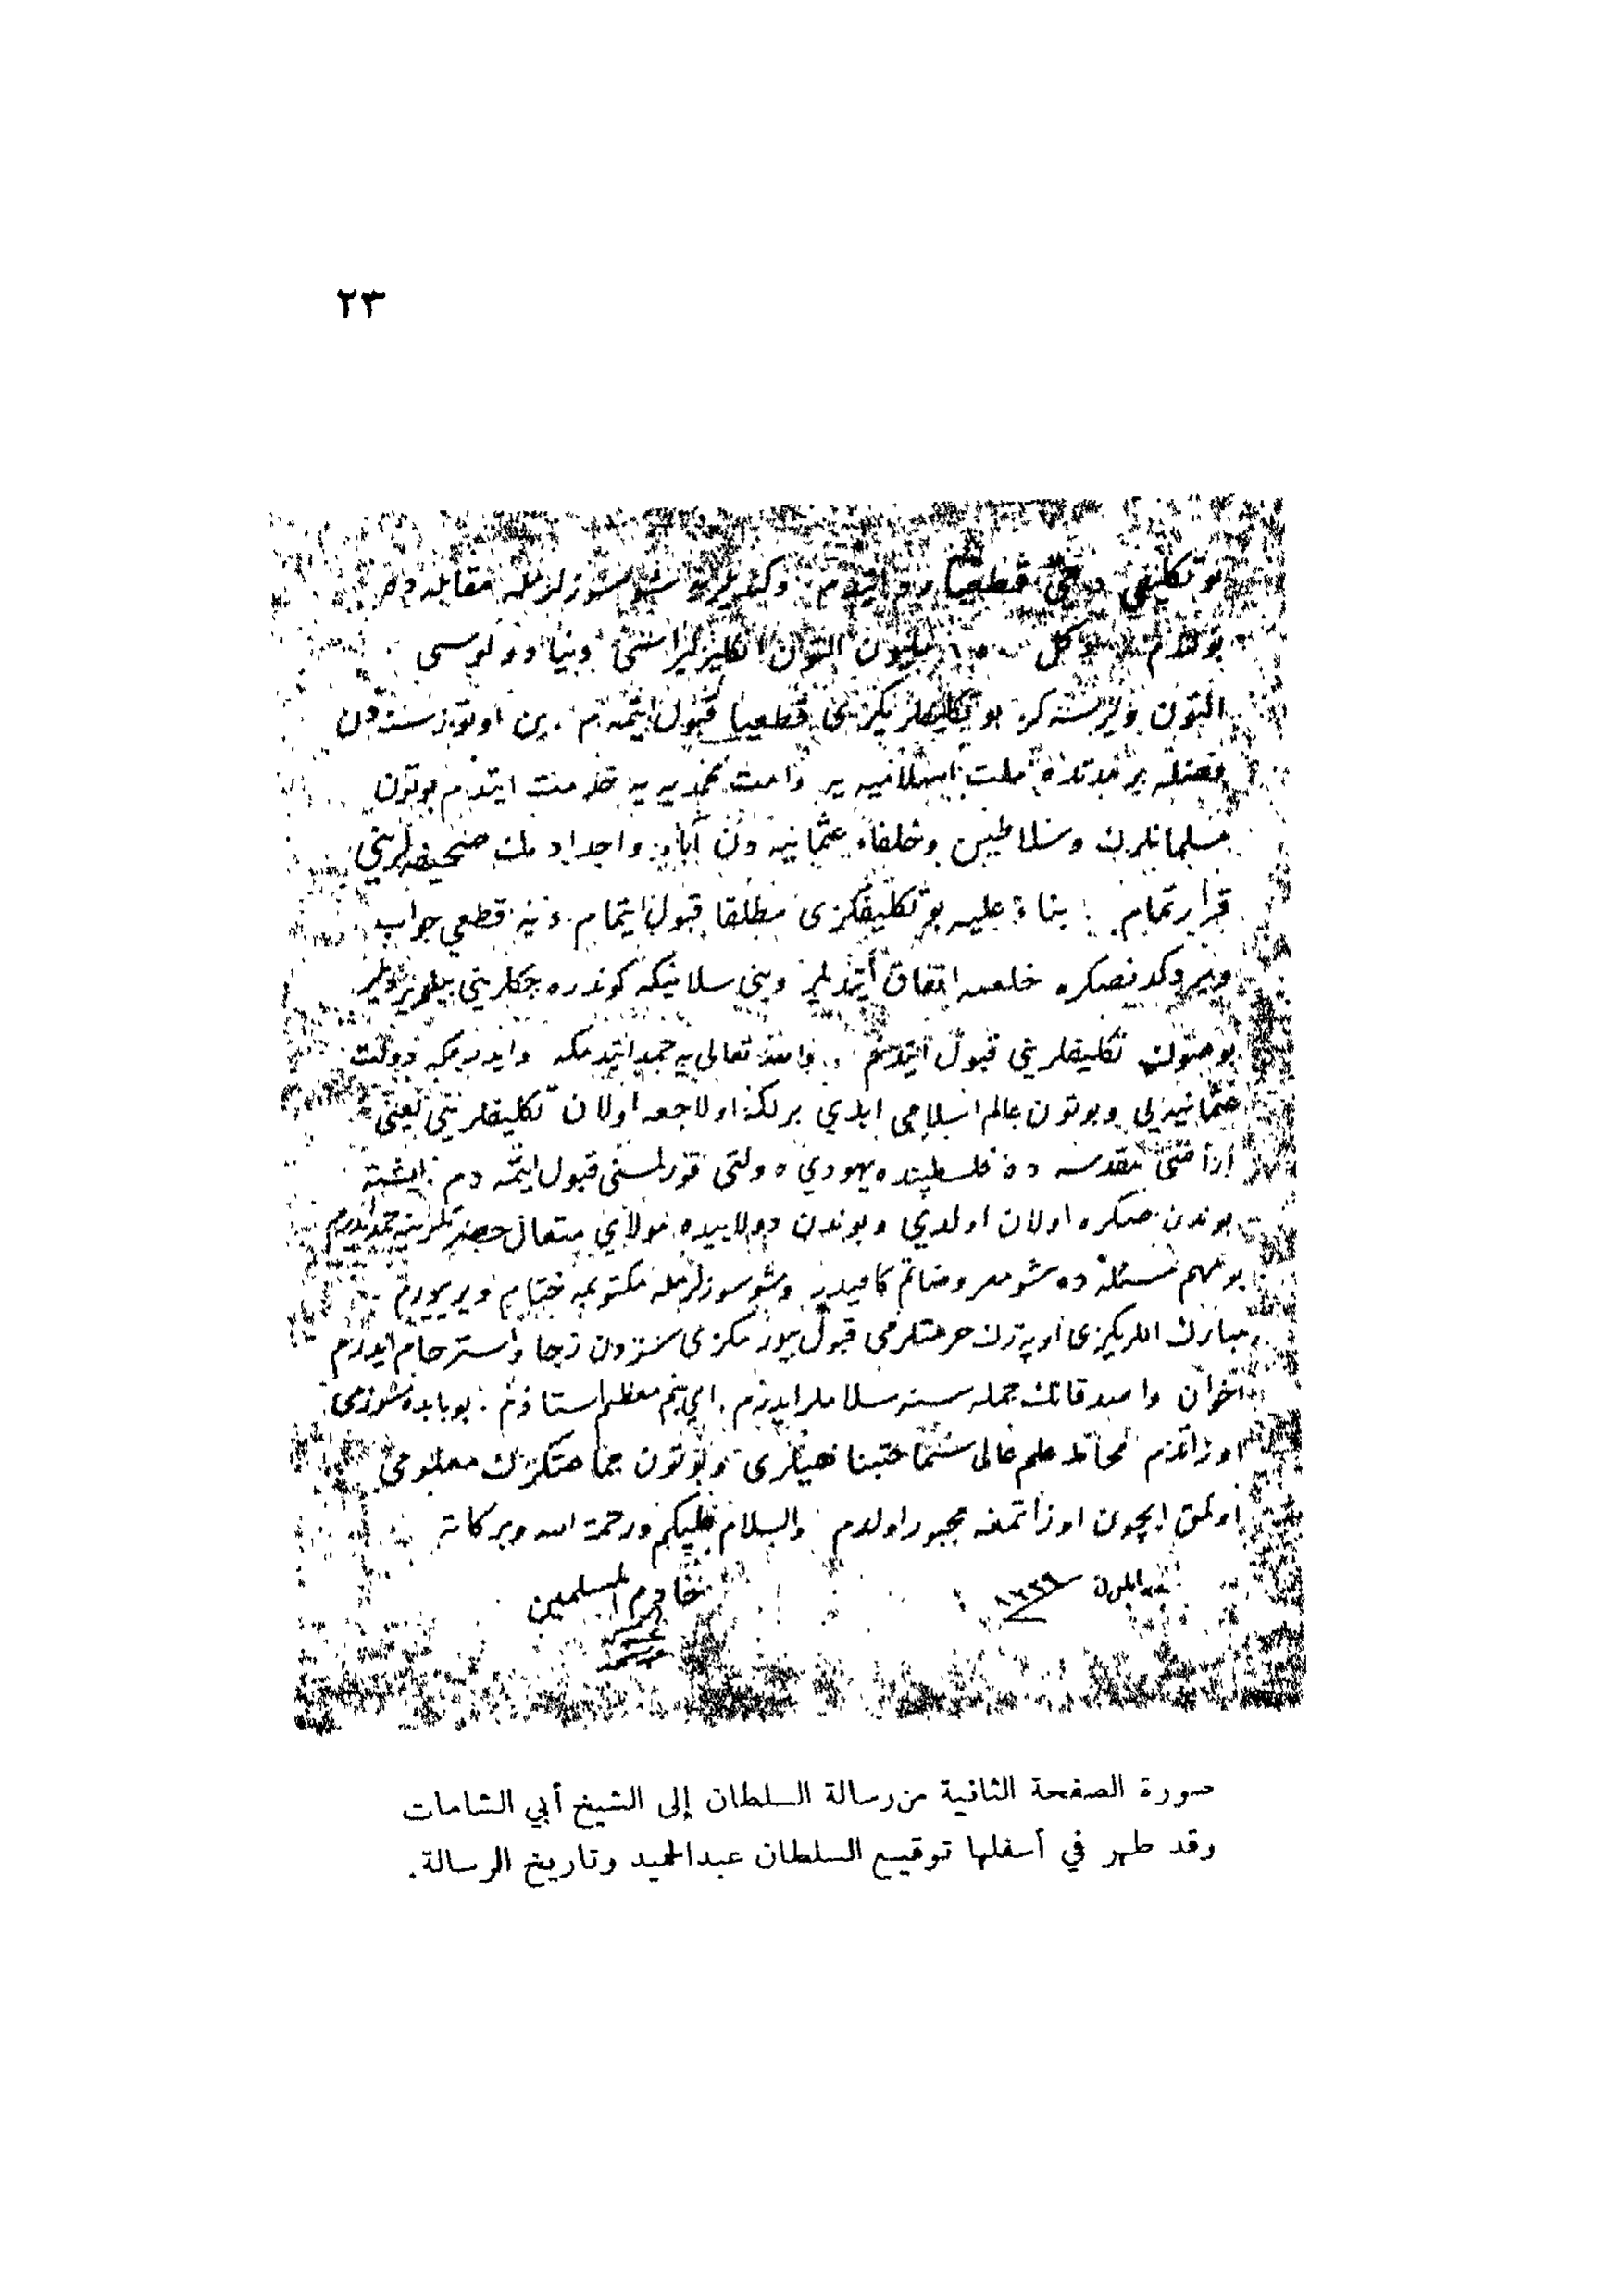 ٢٣
بو تكليفى دخى قطعياً رد ايتدم وكنديلرينه شو سوزلرمله مقابله ده
بولندم دكل ميليون التون انكليز ليراسى دنيا دولوسى
التون ويرسه كز بو تكليفلريكزى قطعيا قبول ايتمه م . بن اوتوز سنه دن
فضله بر مدتده ملت اسلاميه يه وامت محمديه يه خدمت ايتدم بوتون
مسلمانلرك وسلاطين وخلفاء عثمانيه دن آباء واجدادمك صحيفه لريني
قرارتمام . بناءً عليه بو تكليفكزى مطلقا قبول ايتمام دنيه قطعي جواب
ويردكدنصكره خلعمه اتفاق ايتديلر وبنى سلانيكه كوندره جكلرينى بيلديرديلر
بوصوك تكليفلريني قبول ايتدم . والله تعالى يه حمد ايتدمكه وايدرمكه دولت
عثمانيه يى وبوتون عالم اسلامي ابدي بر لكه اولاجعه اولان تكليفلريني يعنى
اراضئ مقدسه ده فلسطينده يهودي دولتى قورلمسنى قبول ايتمه دم . ايشته
بوندن صكره اولان اولدي وبوندن دولاييده مولاي متعال حضرتلرينه حمد ايدرم
بو مهم مسئله ده شو معروضاتم كافيدر وشو سوزلرمله مكتوبمه ختام ويريورم
مبارك اللريكزى اوپه رك حرمتلرمى قبول بيورمكزى سزدن رجا واسترحام ايدرم
اخوان واصدقانك جمله سنه سلاملر ايدرم . اي بنم معظم استاذم : بوبابده سوزمى
اوزاتدم محاط علم عالى سماحتپناهيلرى وبوتون جماعتكزك معلومى
اولمق ايچون اوزاتمغه مجبور اولدم والسلام عليكم ورحمة الله وبركاته
ايلول ١٣٢٩
خادم المسلمين
صورة الصفحة الثانية من رسالة السلطان إلى الشيخ أبي الشامات
وقد ظهر في أسفلها توقيع السلطان عبدالحميد وتاريخ الرسالة.